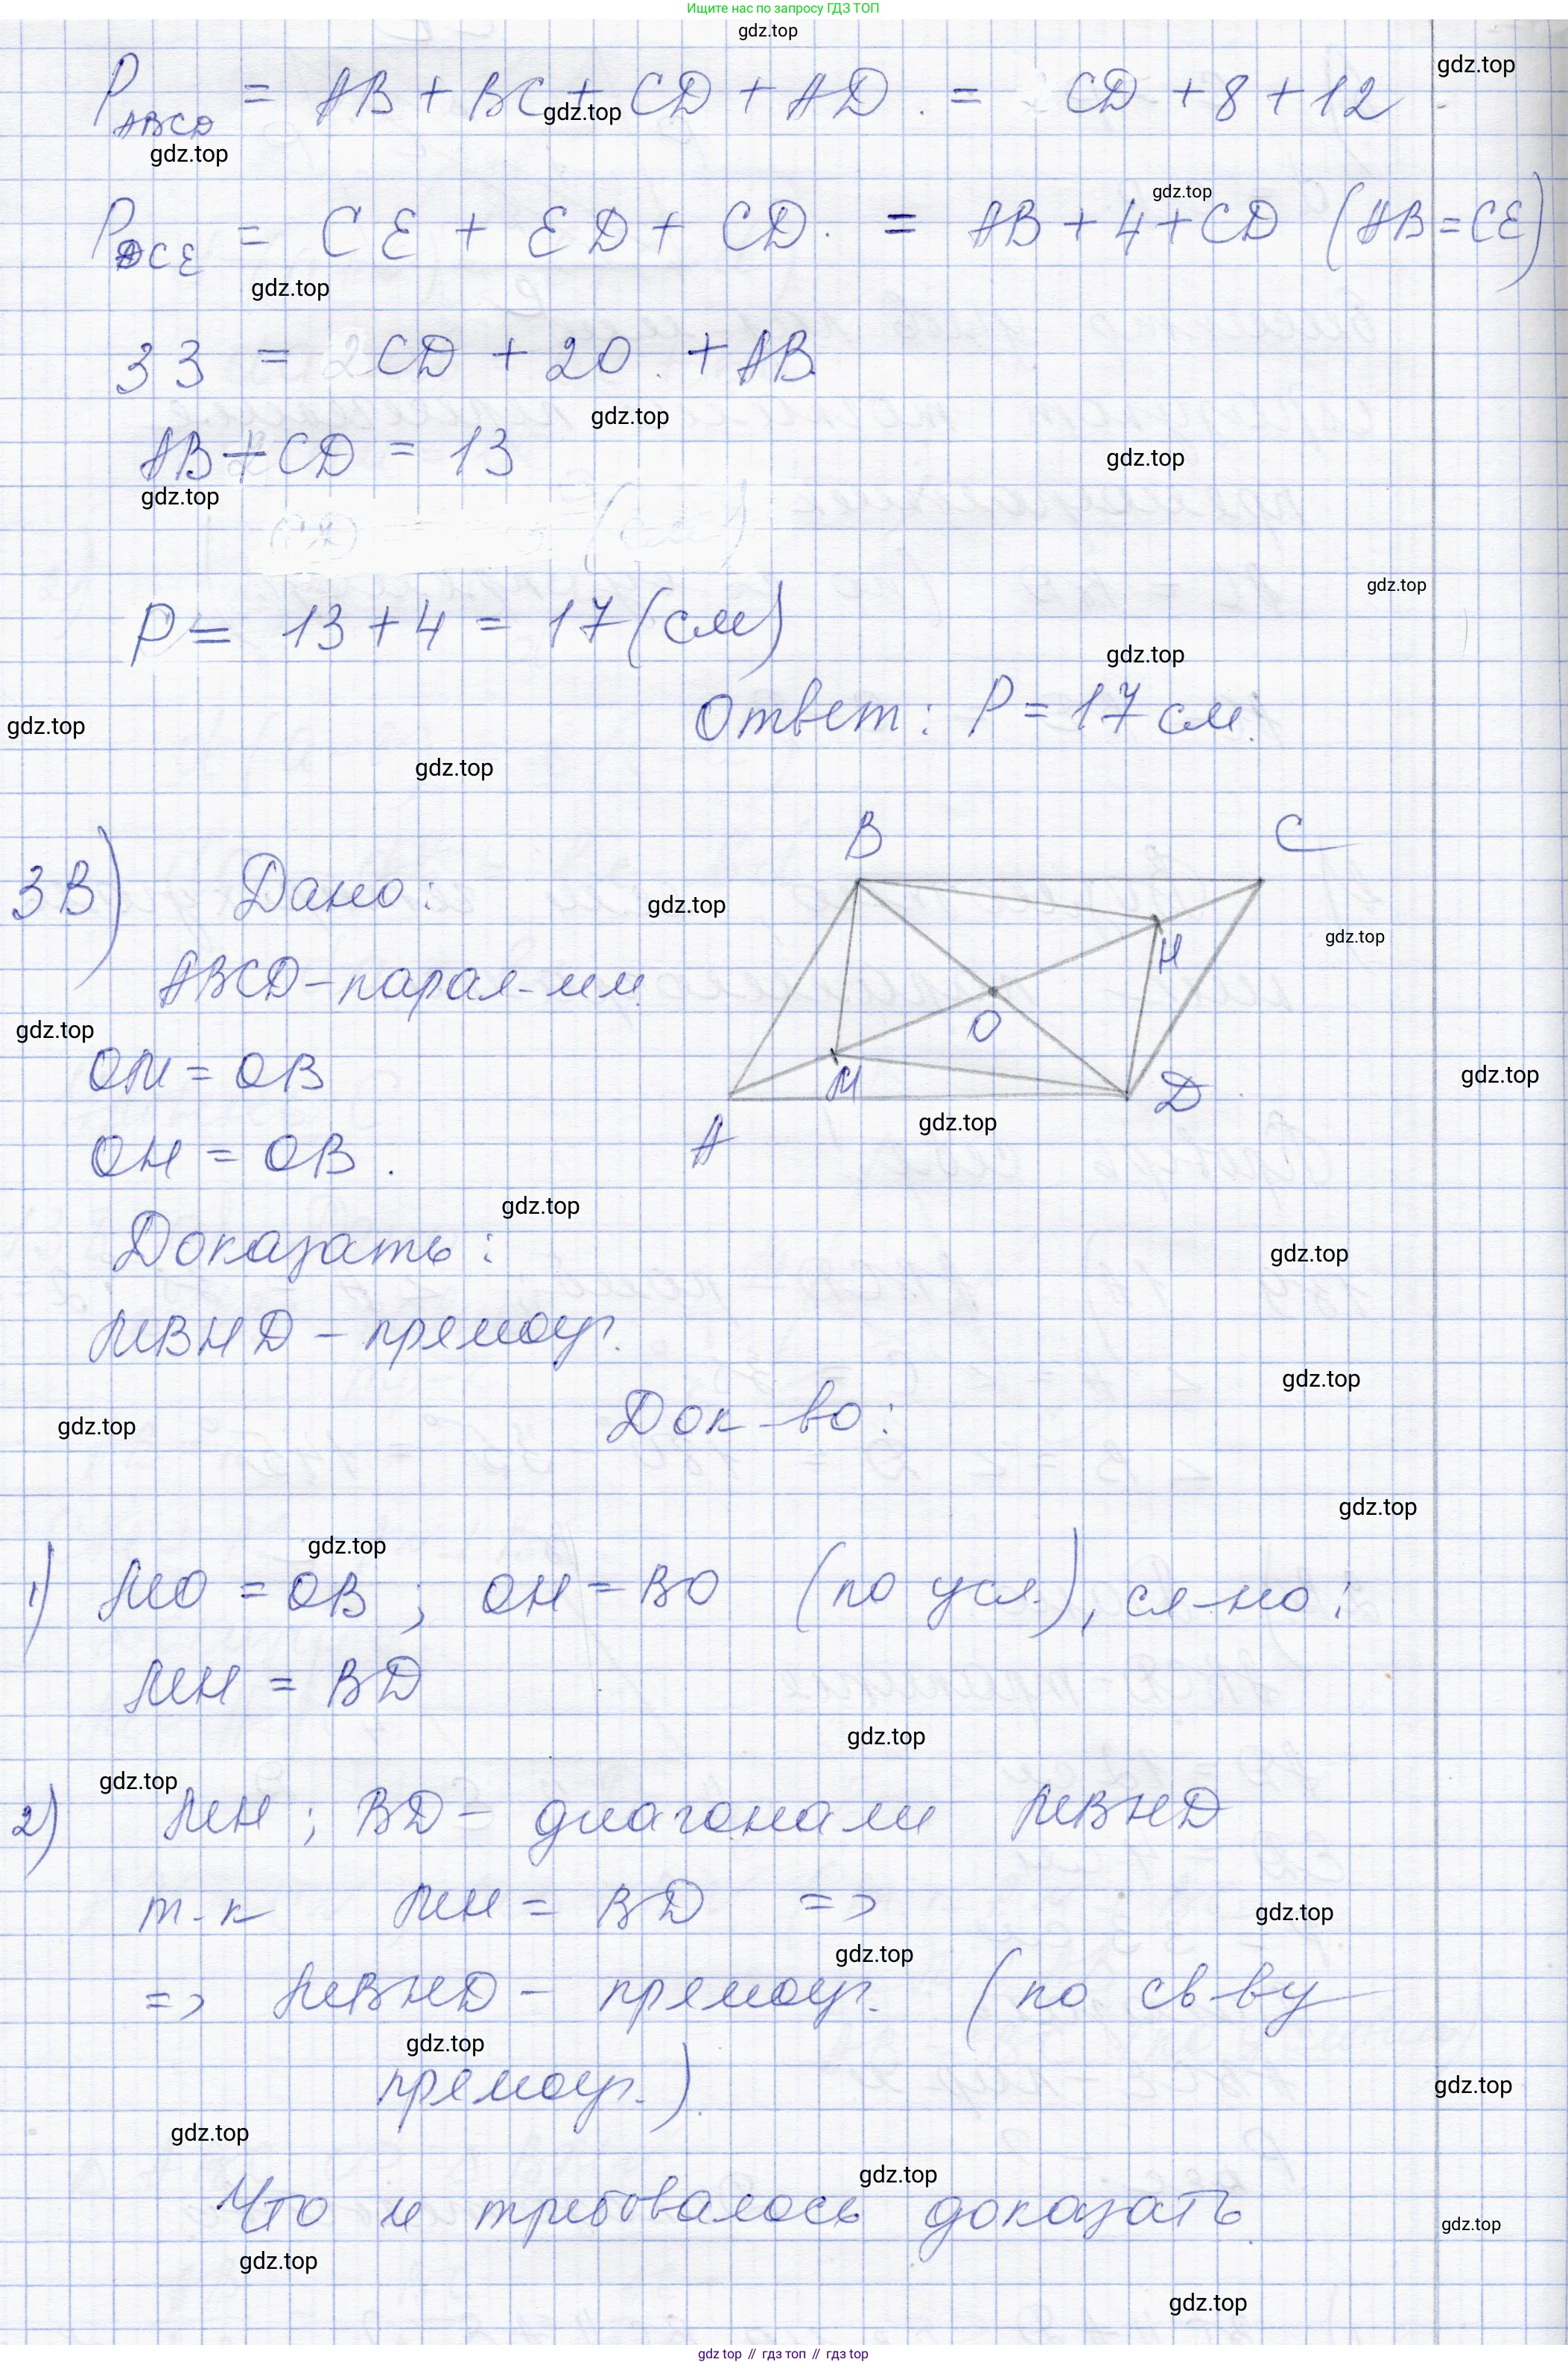 Ищите нас по запросу ГДЗ ТОП
gdz.top
P ABCD = AB + BC + CD + AD. = CD + 8 + 12
gdz.top
gdz.top
gdz.top
P DCE = CE + ED + CD. = AB + 4 + CD (AB = CE)
gdz.top
gdz.top
33 = CD + 20. + AB
gdz.top
AB + CD = 13
gdz.top
gdz.top
gdz.top
P = 13 + 4 = 17 (см)
gdz.top
Ответ: P = 17 см.
gdz.top
gdz.top
B
C
3В) Дано:
gdz.top
gdz.top
H
ABCD - парал-мм
gdz.top
O
OM = OB
M
D
gdz.top
gdz.top
A
OH = OB.
gdz.top
Доказать:
gdz.top
MBHD - прямоуг.
gdz.top
Док-во:
gdz.top
gdz.top
gdz.top
1) MO = OB; OH = BO (по усл.), сл-но:
MH = BD
gdz.top
gdz.top
2) MH; BD - диагонали MBHD
т-к MH = BD =>
gdz.top
gdz.top
=> MBHD - прямоуг. (по св-ву
gdz.top
прямоуг.).
gdz.top
gdz.top
gdz.top
Что и требовалось доказать.
gdz.top
gdz.top
gdz.top
gdz top // гдз топ // гдз top